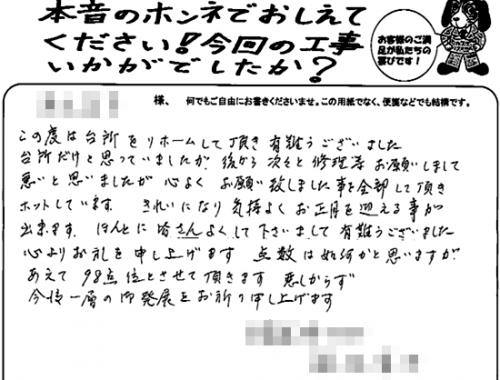 本音のホンネでおしえて
ください!今回の工事
いかがでしたか?
お客様のご満
足が私たちの
喜びです!
様、 何でもご自由にお書きくださいませ。この用紙でなく、便箋などでも結構です。
この度は台所をリホームして頂き有難うございました
台所だけと思っていましたが、後から次々と修理等お願いしまして
悪いと思いましたが心よくお願い致しました事を全部して頂き
ホットしています。きれいになり気持よくお正月を迎える事が
出来ます。ほんとに皆さんよくして下さいまして有難うございました
心よりお礼を申し上げます 点数は如何かと思いますが
あえて98点位とさせて頂きます 悪しからず
今後一層の御発展をお祈り申し上げます